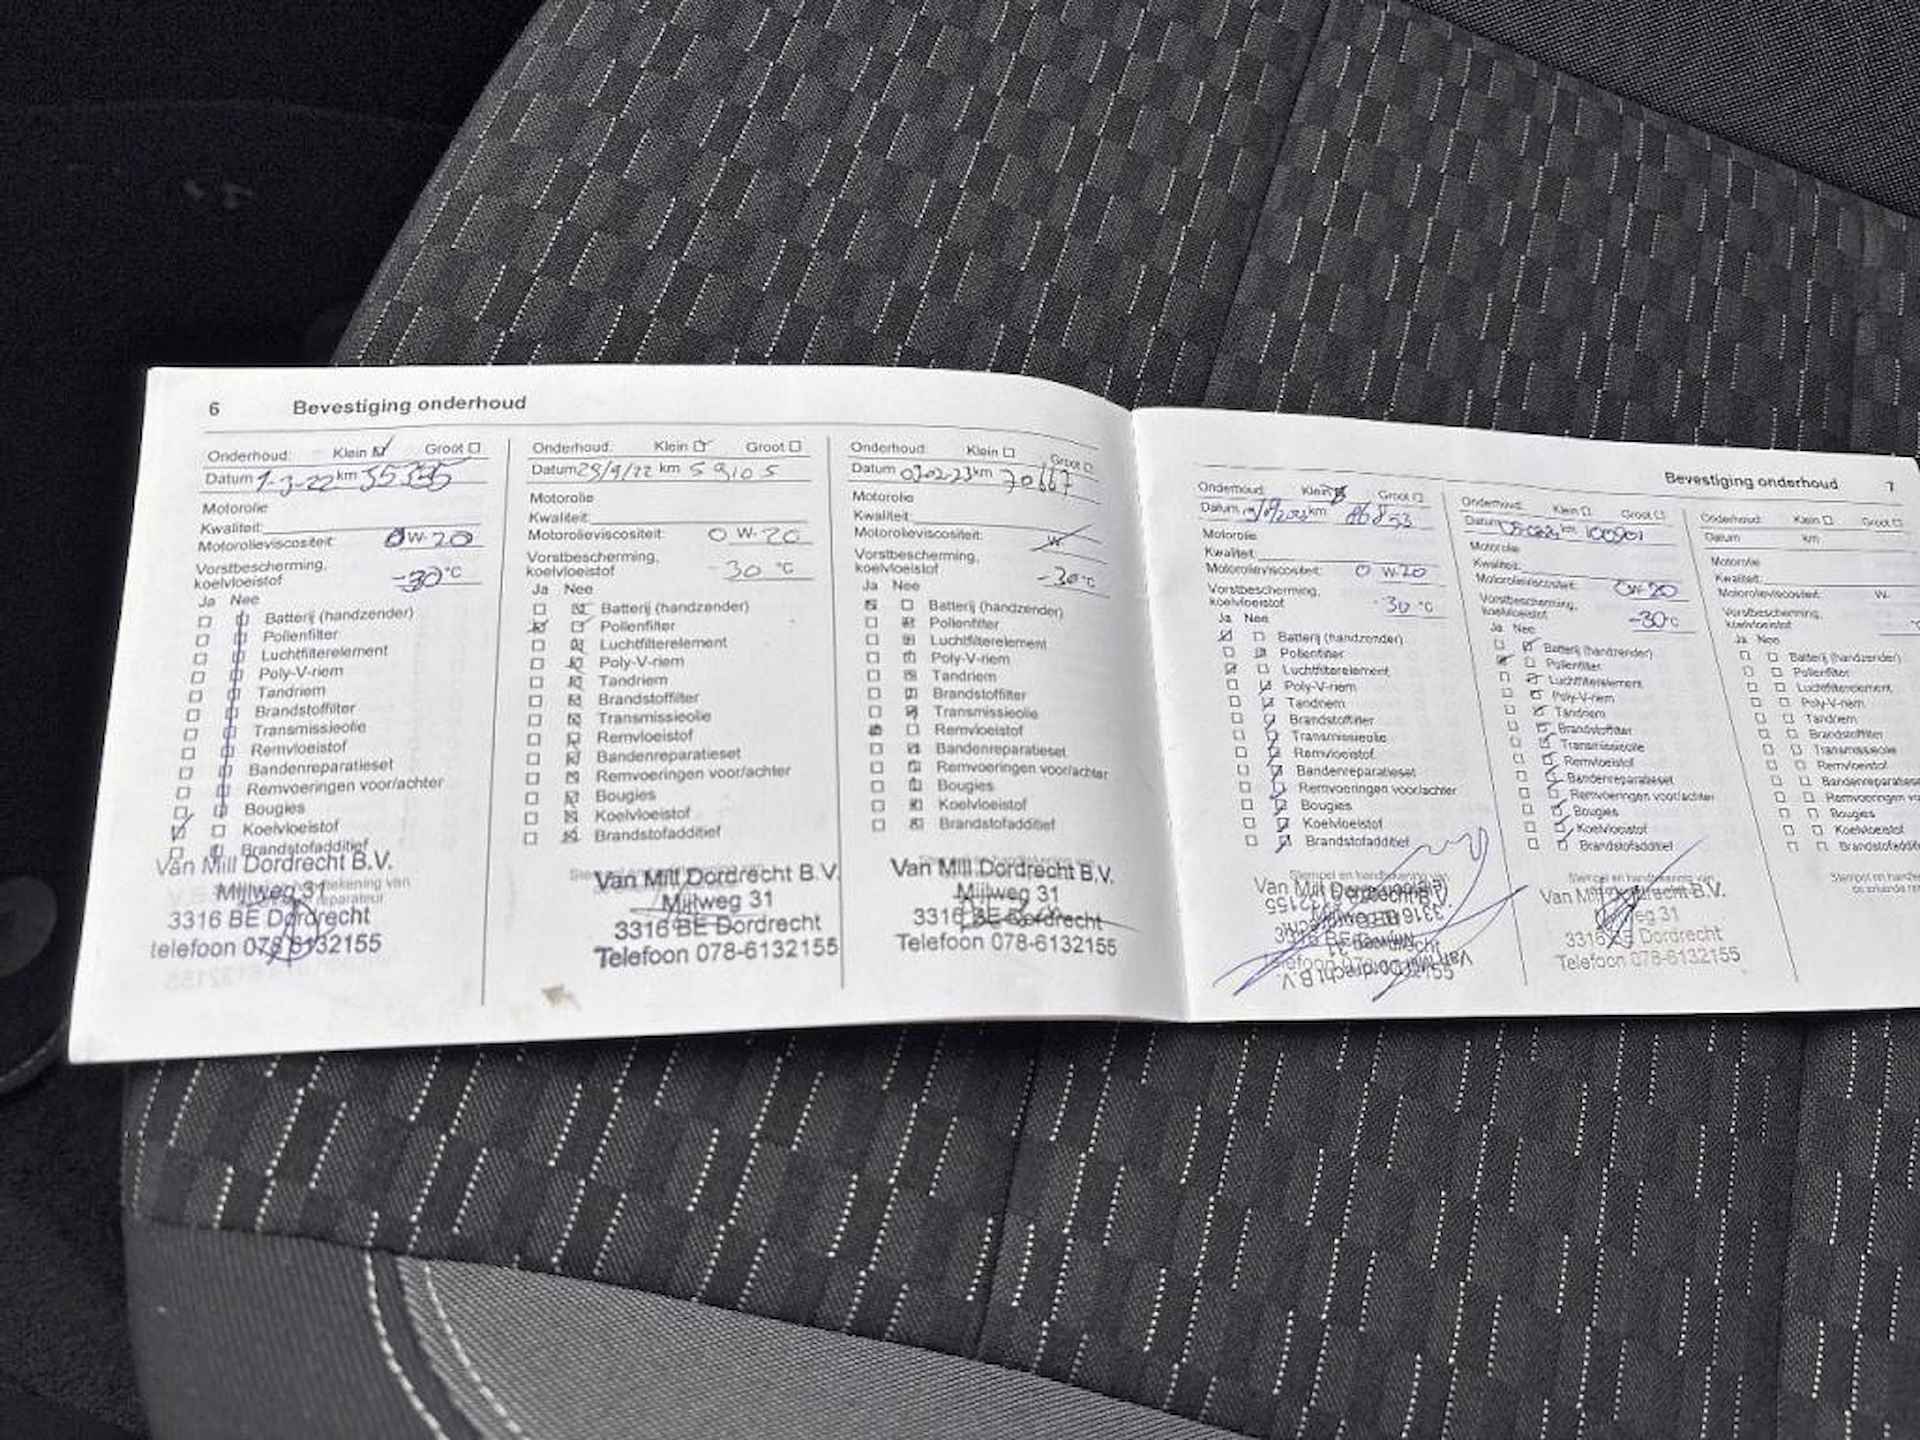 6 Bevestiging onderhoud
Onderhoud: Klein Groot
Datum 1-3-22 km
Motorolie
Kwaliteit:
Motorolieviscositeit: 0 W-20
Vorstbescherming,
koelvloeistof -30 °C
Ja Nee
Batterij (handzender)
Pollenfilter
Luchtfilterelement
Poly-V-riem
Tandriem
Brandstoffilter
Transmissieolie
Remvloeistof
Bandenreparatieset
Remvoeringen voor/achter
Bougies
Koelvloeistof
Brandstofadditief
Van Mill Dordrecht B.V.
Mijlweg 31
3316 BE Dordrecht
telefoon 078-6132155
Onderhoud: Klein Groot
Datum 29/9/22 km 59105
Motorolie
Kwaliteit:
Motorolieviscositeit: 0 W-20
Vorstbescherming,
koelvloeistof -30 °C
Ja Nee
Batterij (handzender)
Pollenfilter
Luchtfilterelement
Poly-V-riem
Tandriem
Brandstoffilter
Transmissieolie
Remvloeistof
Bandenreparatieset
Remvoeringen voor/achter
Bougies
Koelvloeistof
Brandstofadditief
Van Mill Dordrecht B.V.
Mijlweg 31
3316 BE Dordrecht
Telefoon 078-6132155
Onderhoud: Klein Groot
Datum 03-02-23 km 70667
Motorolie
Kwaliteit:
Motorolieviscositeit: W-
Vorstbescherming,
koelvloeistof -30 °C
Ja Nee
Batterij (handzender)
Pollenfilter
Luchtfilterelement
Poly-V-riem
Tandriem
Brandstoffilter
Transmissieolie
Remvloeistof
Bandenreparatieset
Remvoeringen voor/achter
Bougies
Koelvloeistof
Brandstofadditief
Van Mill Dordrecht B.V.
Mijlweg 31
3316 BE Dordrecht
Telefoon 078-6132155
Bevestiging onderhoud 7
Onderhoud: Klein Groot
Datum km 86853
Motorolie
Kwaliteit:
Motorolieviscositeit: 0 W-20
Vorstbescherming,
koelvloeistof -30 °C
Ja Nee
Batterij (handzender)
Pollenfilter
Luchtfilterelement
Poly-V-riem
Tandriem
Brandstoffilter
Transmissieolie
Remvloeistof
Bandenreparatieset
Remvoeringen voor/achter
Bougies
Koelvloeistof
Brandstofadditief
Onderhoud: Klein Groot
Datum km 100901
Motorolie
Kwaliteit:
Motorolieviscositeit: 0W-20
Vorstbescherming,
koelvloeistof -30 °C
Ja Nee
Batterij (handzender)
Pollenfilter
Luchtfilterelement
Poly-V-riem
Tandriem
Brandstoffilter
Transmissieolie
Remvloeistof
Bandenreparatieset
Remvoeringen voor/achter
Bougies
Koelvloeistof
Brandstofadditief
Stempel en handtekening van
Van Mill Dordrecht B.V.
Mijlweg 31
3316 BE Dordrecht
Telefoon 078-6132155
Onderhoud: Klein Groot
Datum km
Motorolie
Kwaliteit:
Motorolieviscositeit: W-
Vorstbescherming,
koelvloeistof
Ja Nee
Batterij (handzender)
Pollenfilter
Luchtfilterelement
Poly-V-riem
Tandriem
Brandstoffilter
Transmissieolie
Remvloeistof
Bandenreparatiese
Remvoeringen vo
Bougies
Koelvloeistof
Brandstofaddit